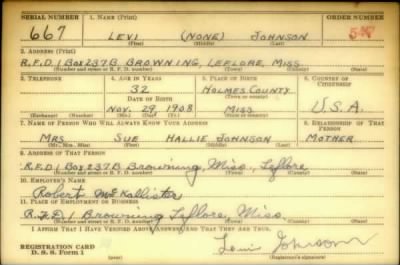 SERIAL NUMBER 1. NAME (Print) ORDER NUMBER
667 LEVI (NONE) JOHNSON
(First) (Middle) (Last)
2. ADDRESS (Print)
R.F.D. 1 Box 237B BROWNING, LEFLORE, MISS
(Number and street or R. F. D. number) (Town) (County) (State)
3. TELEPHONE 4. AGE IN YEARS 5. PLACE OF BIRTH 6. COUNTRY OF CITIZENSHIP
32 HOLMES COUNTY
DATE OF BIRTH (Town or county)
NOV. 29 1908 MISS U.S.A.
(Exchange) (Number) (Mo.) (Day) (Yr.) (State or country)
7. NAME OF PERSON WHO WILL ALWAYS KNOW YOUR ADDRESS 8. RELATIONSHIP OF THAT PERSON
MRS SUE HALLIE JOHNSON MOTHER
(Mr., Mrs., Miss) (First) (Middle) (Last)
9. ADDRESS OF THAT PERSON
R.F.D. 1 Box 237B Browning, Miss, Leflore
(Number and street or R. F. D. number) (Town) (County) (State)
10. EMPLOYER'S NAME
Robert McKallister
11. PLACE OF EMPLOYMENT OR BUSINESS
R.F.D. 1 Browning Leflore, Miss.
(Number and street or R. F. D. number) (Town) (County) (State)
I AFFIRM THAT I HAVE VERIFIED ABOVE ANSWERS AND THAT THEY ARE TRUE.
REGISTRATION CARD
D. S. S. Form 1 Levi Johnson
(Registrant's signature)